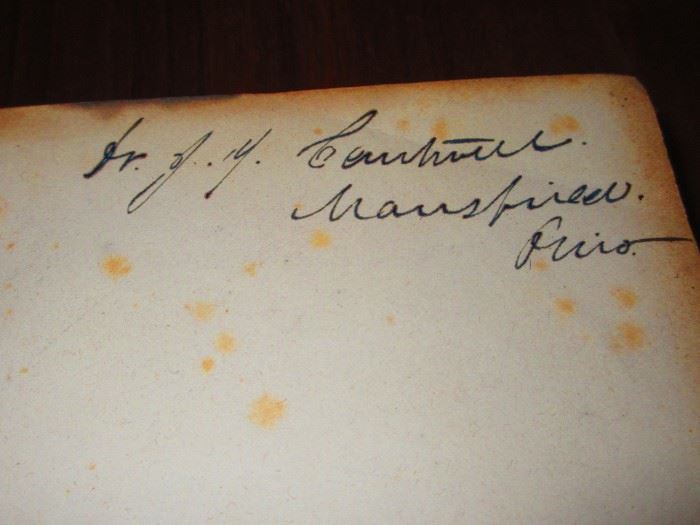 Dr. J. Y. Cantwell.
Mansfield.
Ohio.